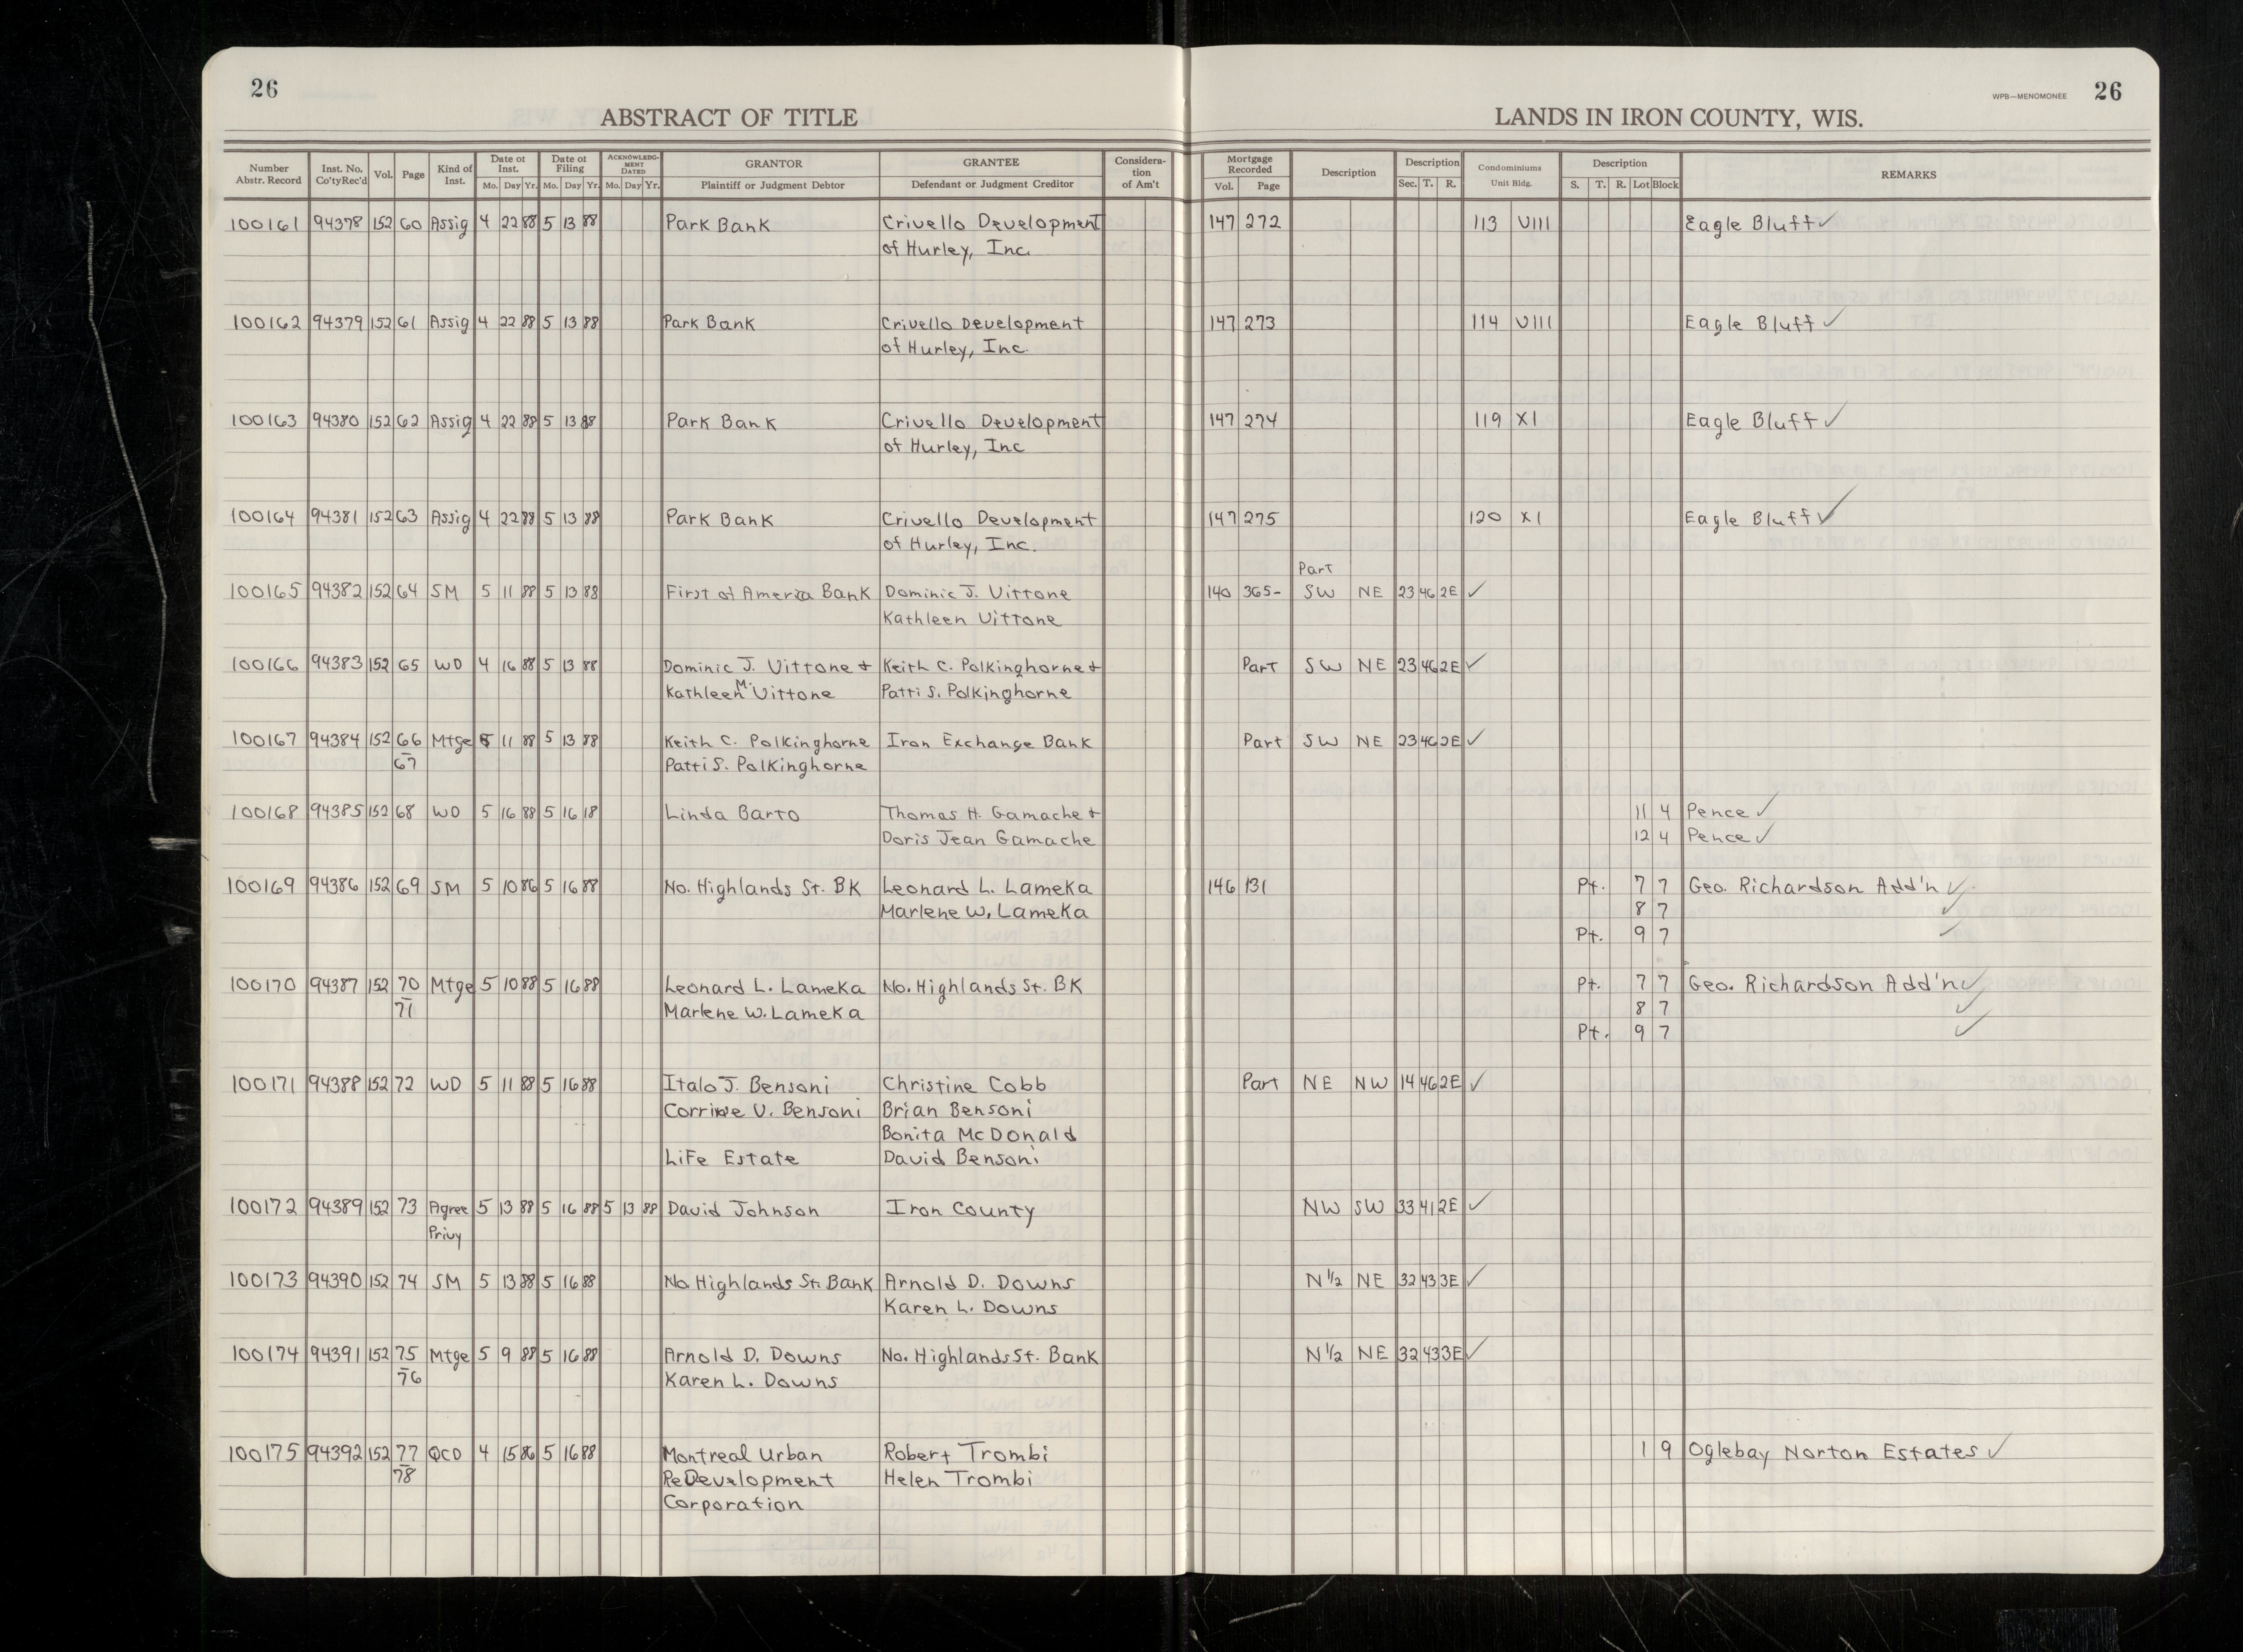 26
ABSTRACT OF TITLE
LANDS IN IRON COUNTY, WIS.
WPB—MENOMONEE 26
Number Abstr. Record Inst. No. Co'ty Rec'd Vol. Page Kind of Inst. Date of Inst. Mo. Day Yr. Date of Filing Mo. Day Yr. ACKNOWLEDGMENT DATED Mo. Day Yr. GRANTOR Plaintiff or Judgment Debtor GRANTEE Defendant or Judgment Creditor Consideration of Am't Mortgage Recorded Vol. Page Description Description Sec. T. R. Condominiums Unit Bldg. Description S. T. R. Lot Block REMARKS
100161 94378 152 60 Assig 4 22 88 5 13 88 Park Bank Crivello Development 147 272 113 VIII Eagle Bluff ✓
of Hurley, Inc.
100162 94379 152 61 Assig 4 22 88 5 13 88 Park Bank Crivello Development 147 273 114 VIII Eagle Bluff ✓
of Hurley, Inc.
100163 94380 152 62 Assig 4 22 88 5 13 88 Park Bank Crivello Development 147 274 119 XI Eagle Bluff ✓
of Hurley, Inc
100164 94381 152 63 Assig 4 22 88 5 13 88 Park Bank Crivello Development 147 275 120 XI Eagle Bluff ✓
of Hurley, Inc.
Part
100165 94382 152 64 SM 5 11 88 5 13 88 First of America Bank Dominic J. Vittone 140 365- SW NE 23 46 2E ✓
Kathleen Vittone
100166 94383 152 65 WD 4 16 88 5 13 88 Dominic J. Vittone + Keith C. Polkinghorne + Part SW NE 23 46 2E ✓
Kathleen M. Vittone Patti S. Polkinghorne
100167 94384 152 66 Mtge 5 11 88 5 13 88 Keith C. Polkinghorne Iron Exchange Bank Part SW NE 23 46 2E ✓
67 Patti S. Polkinghorne
100168 94385 152 68 WD 5 16 88 5 16 18 Linda Barto Thomas H. Gamache + 11 4 Pence ✓
Doris Jean Gamache 12 4 Pence ✓
100169 94386 152 69 SM 5 10 86 5 16 88 No. Highlands St. BK Leonard L. Lameka 146 131 Pt. 7 7 Geo. Richardson Add'n ✓
Marlene W. Lameka 8 7 ✓
Pt. 9 7 ✓
100170 94387 152 70 Mtge 5 10 88 5 16 88 Leonard L. Lameka No. Highlands St. BK Pt. 7 7 Geo. Richardson Add'n ✓
71 Marlene W. Lameka 8 7 ✓
Pt. 9 7 ✓
100171 94388 152 72 WD 5 11 88 5 16 88 Italo J. Bensoni Christine Cobb Part NE NW 14 46 2E ✓
Corrine V. Bensoni Brian Bensoni
Bonita McDonald
Life Estate David Bensoni
100172 94389 152 73 Agree 5 13 88 5 16 88 5 13 88 David Johnson Iron County NW SW 33 41 2E ✓
Privy
100173 94390 152 74 SM 5 13 88 5 16 88 No. Highlands St. Bank Arnold D. Downs N 1/2 NE 32 43 3E ✓
Karen L. Downs
100174 94391 152 75 Mtge 5 9 88 5 16 88 Arnold D. Downs No. Highlands St. Bank N 1/2 NE 32 43 3E ✓
76 Karen L. Downs
100175 94392 152 77 QCD 4 15 86 5 16 88 Montreal Urban Robert Trombi 1 9 Oglebay Norton Estates ✓
78 ReDevelopment Helen Trombi
Corporation